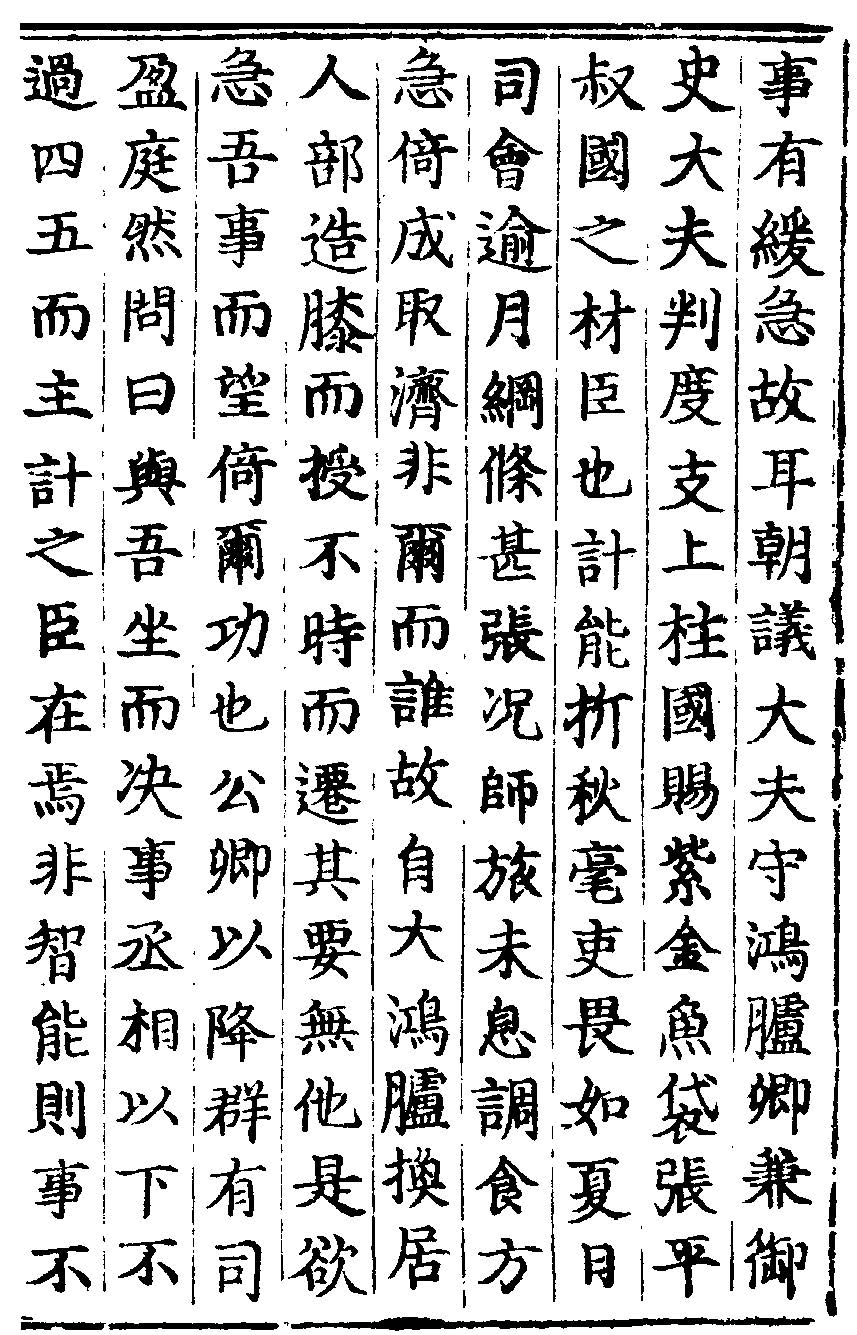 事有緩急故耳朝議大夫守鴻臚卿兼御
史大夫判度支上柱國賜紫金魚袋張平
叔國之材臣也計能折秋毫吏畏如夏日
司會逾月綱條甚張況師旅未息調食方
急倚成取濟非爾而誰故自大鴻臚換居
人部造膝而授不時而遷其要無他是欲
急吾事而望倚爾功也公卿以降群有司
盈庭然問曰與吾坐而決事丞相以下不
過四五而主計之臣在焉非智能則事不